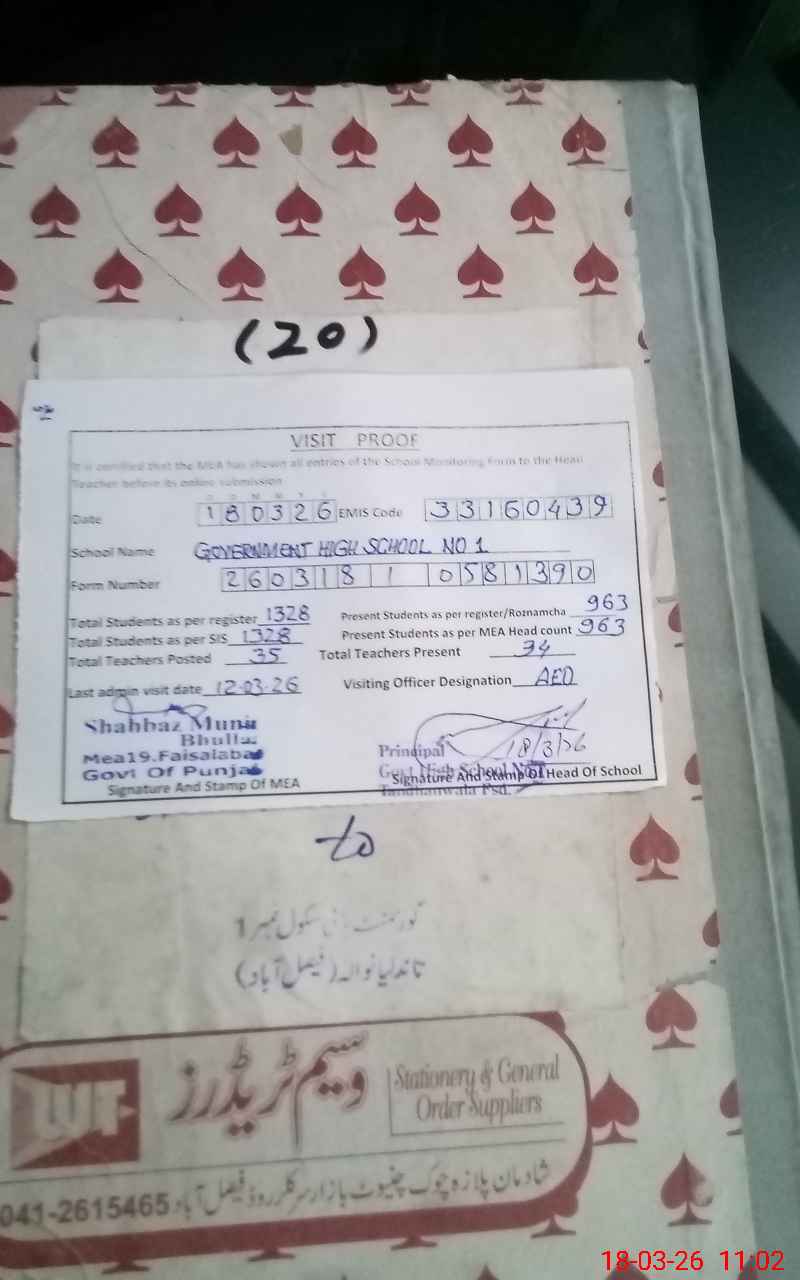 (20)
VISIT PROOF
It is certified that the MEA has shown all entries of the School Monitoring Form to the Head
Teacher before its online submission
D D M M Y Y
Date 180326 EMIS Code 33160439
School Name GOVERNMENT HIGH SCHOOL NO 1
Form Number 260318 1 0581390
Total Students as per register 1328 Present Students as per register/Roznamcha 963
Total Students as per SIS 1328 Present Students as per MEA Head count 963
Total Teachers Posted 35 Total Teachers Present 34
Last admin visit date 12-03-26 Visiting Officer Designation AEO
Shahbaz Munir
Bhullar
Mea19.Faisalabad
Govt Of Punjab
Signature And Stamp Of MEA
18/3/26
Principal
Govt High School No.1
Tandlianwala Fsd.
Signature And Stamp Of Head Of School
to
گورنمنٹ ہائی سکول نمبر 1
تاندلیانوالہ (فیصل آباد)
وسیم ٹریڈرز
Stationery & General
Order Suppliers
شادمان پلازہ چوک چنیوٹ بازار سرکلر روڈ فیصل آباد 041-2615465
18-03-26 11:02